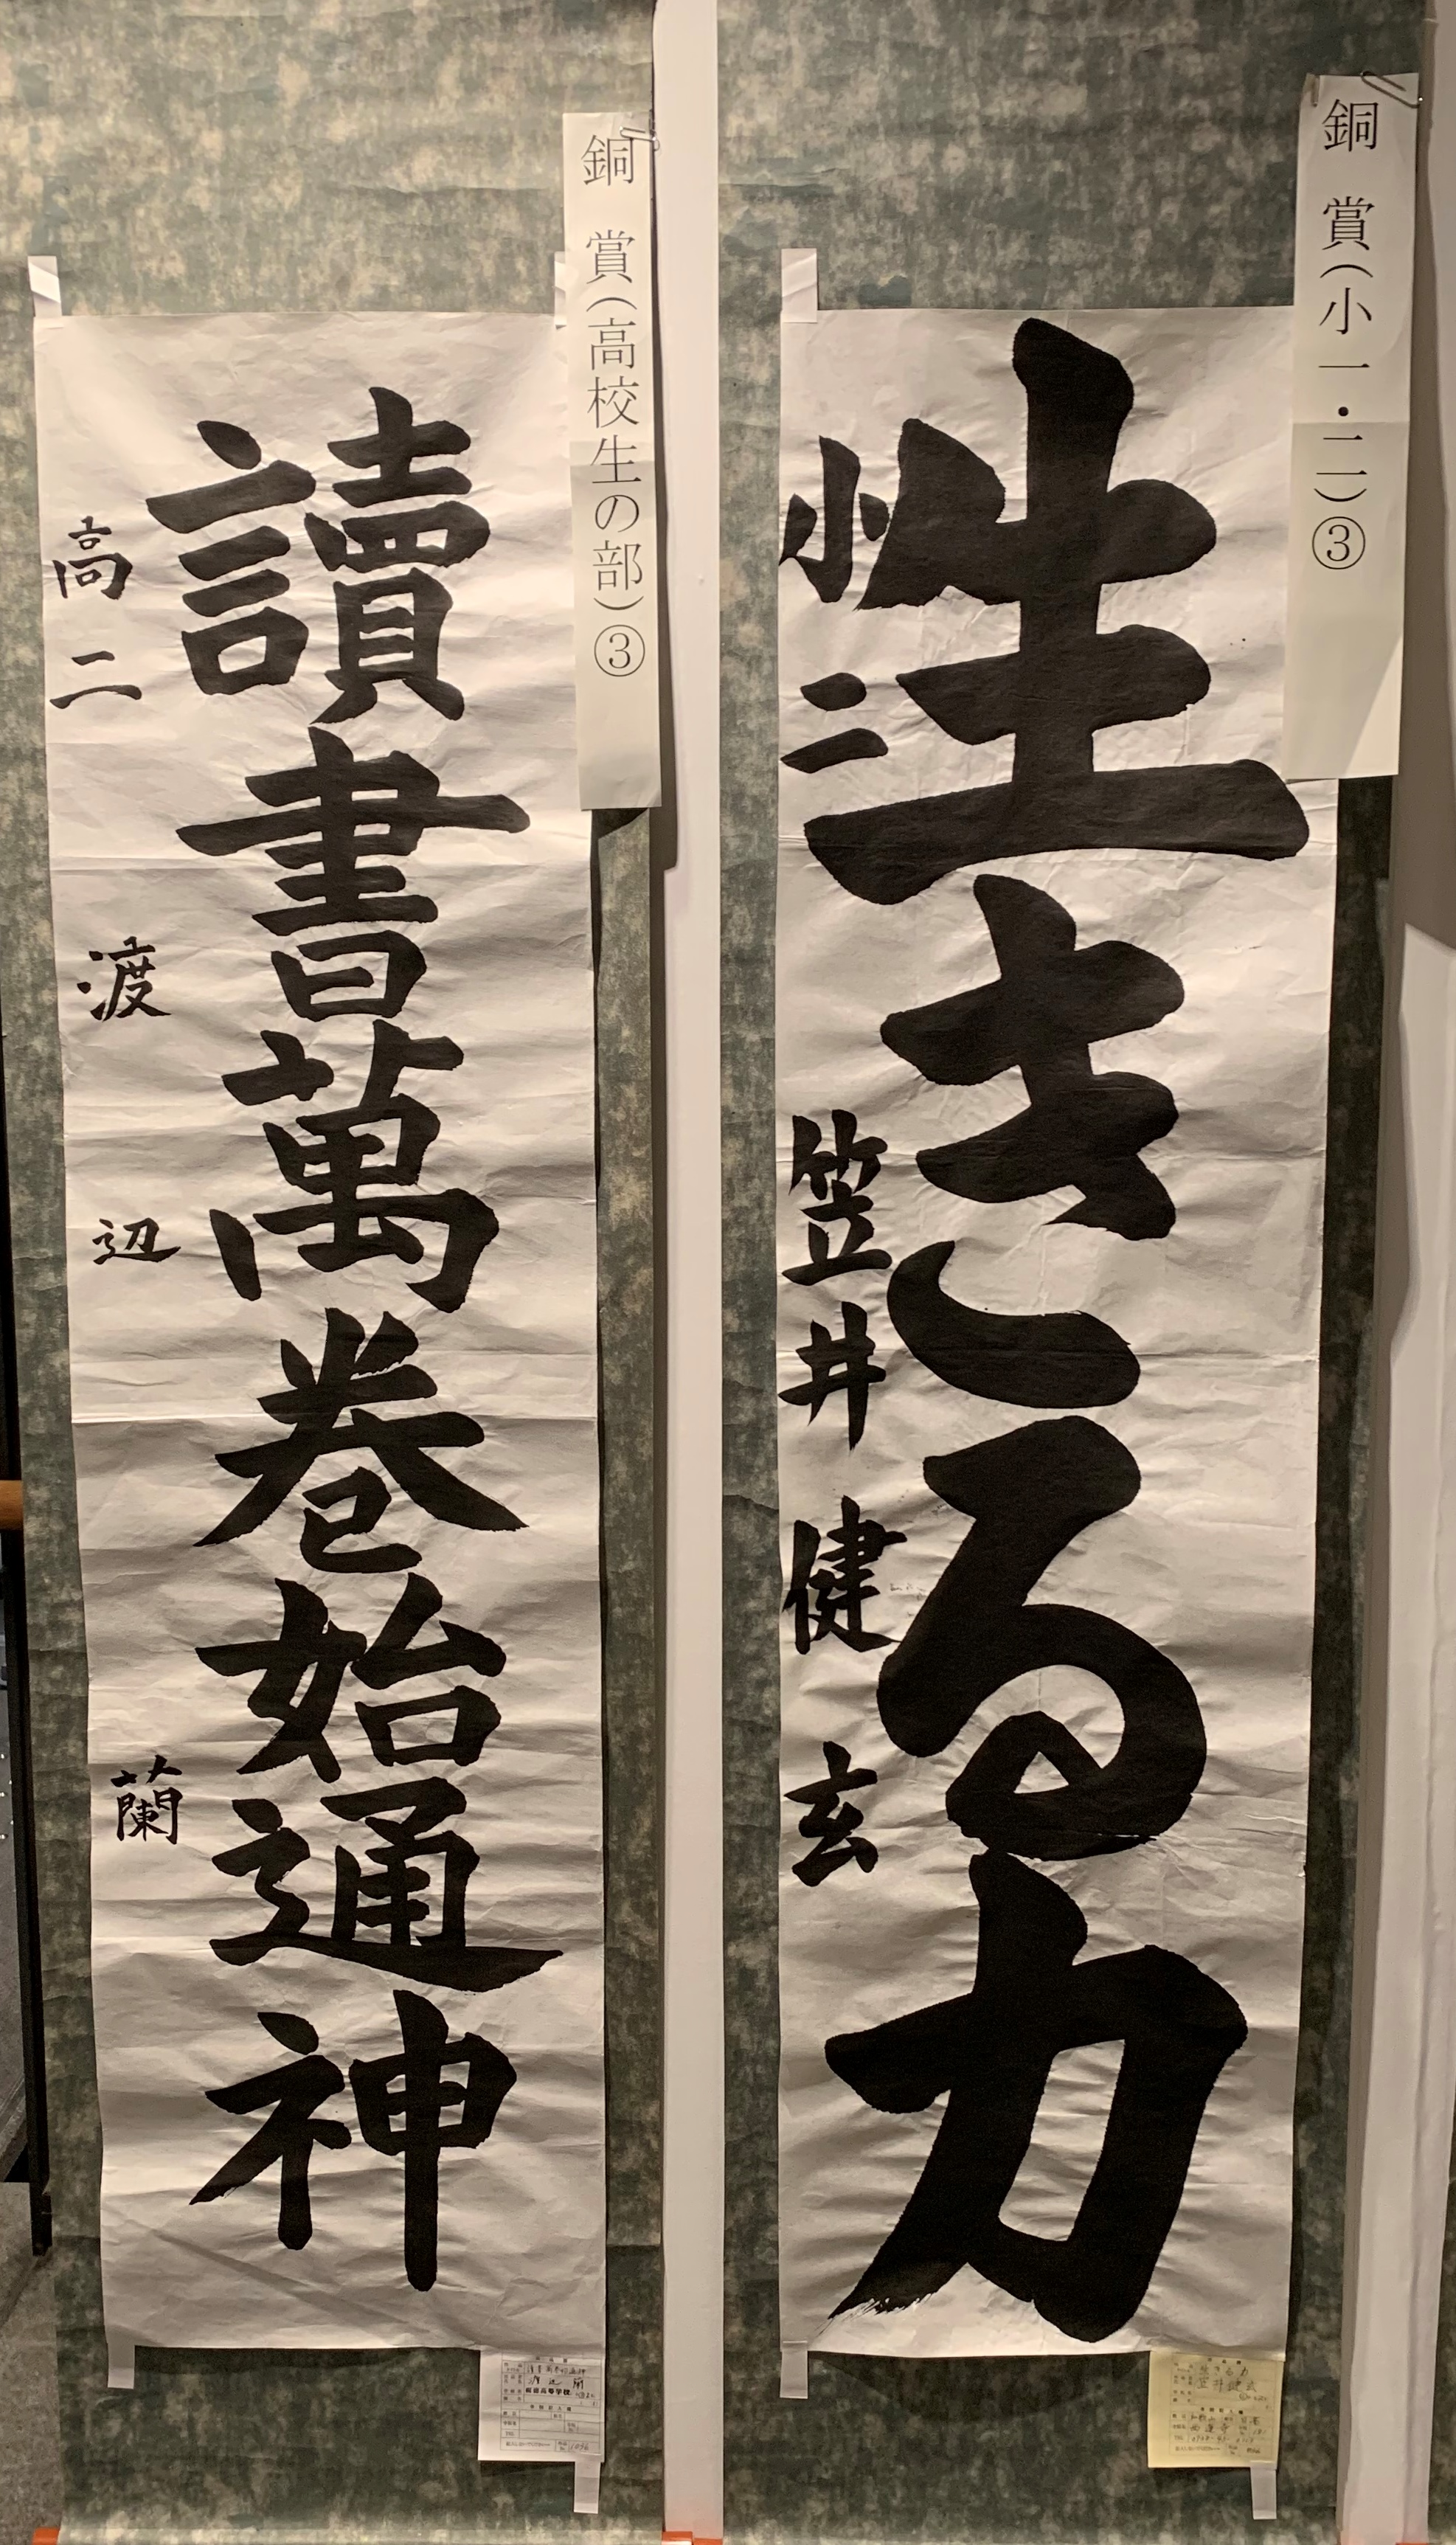 銅賞(小一・二)③
生きる力
小二 笠井健玄
銅賞(高校生の部)③
讀書萬巻始通神
高二 渡辺蘭